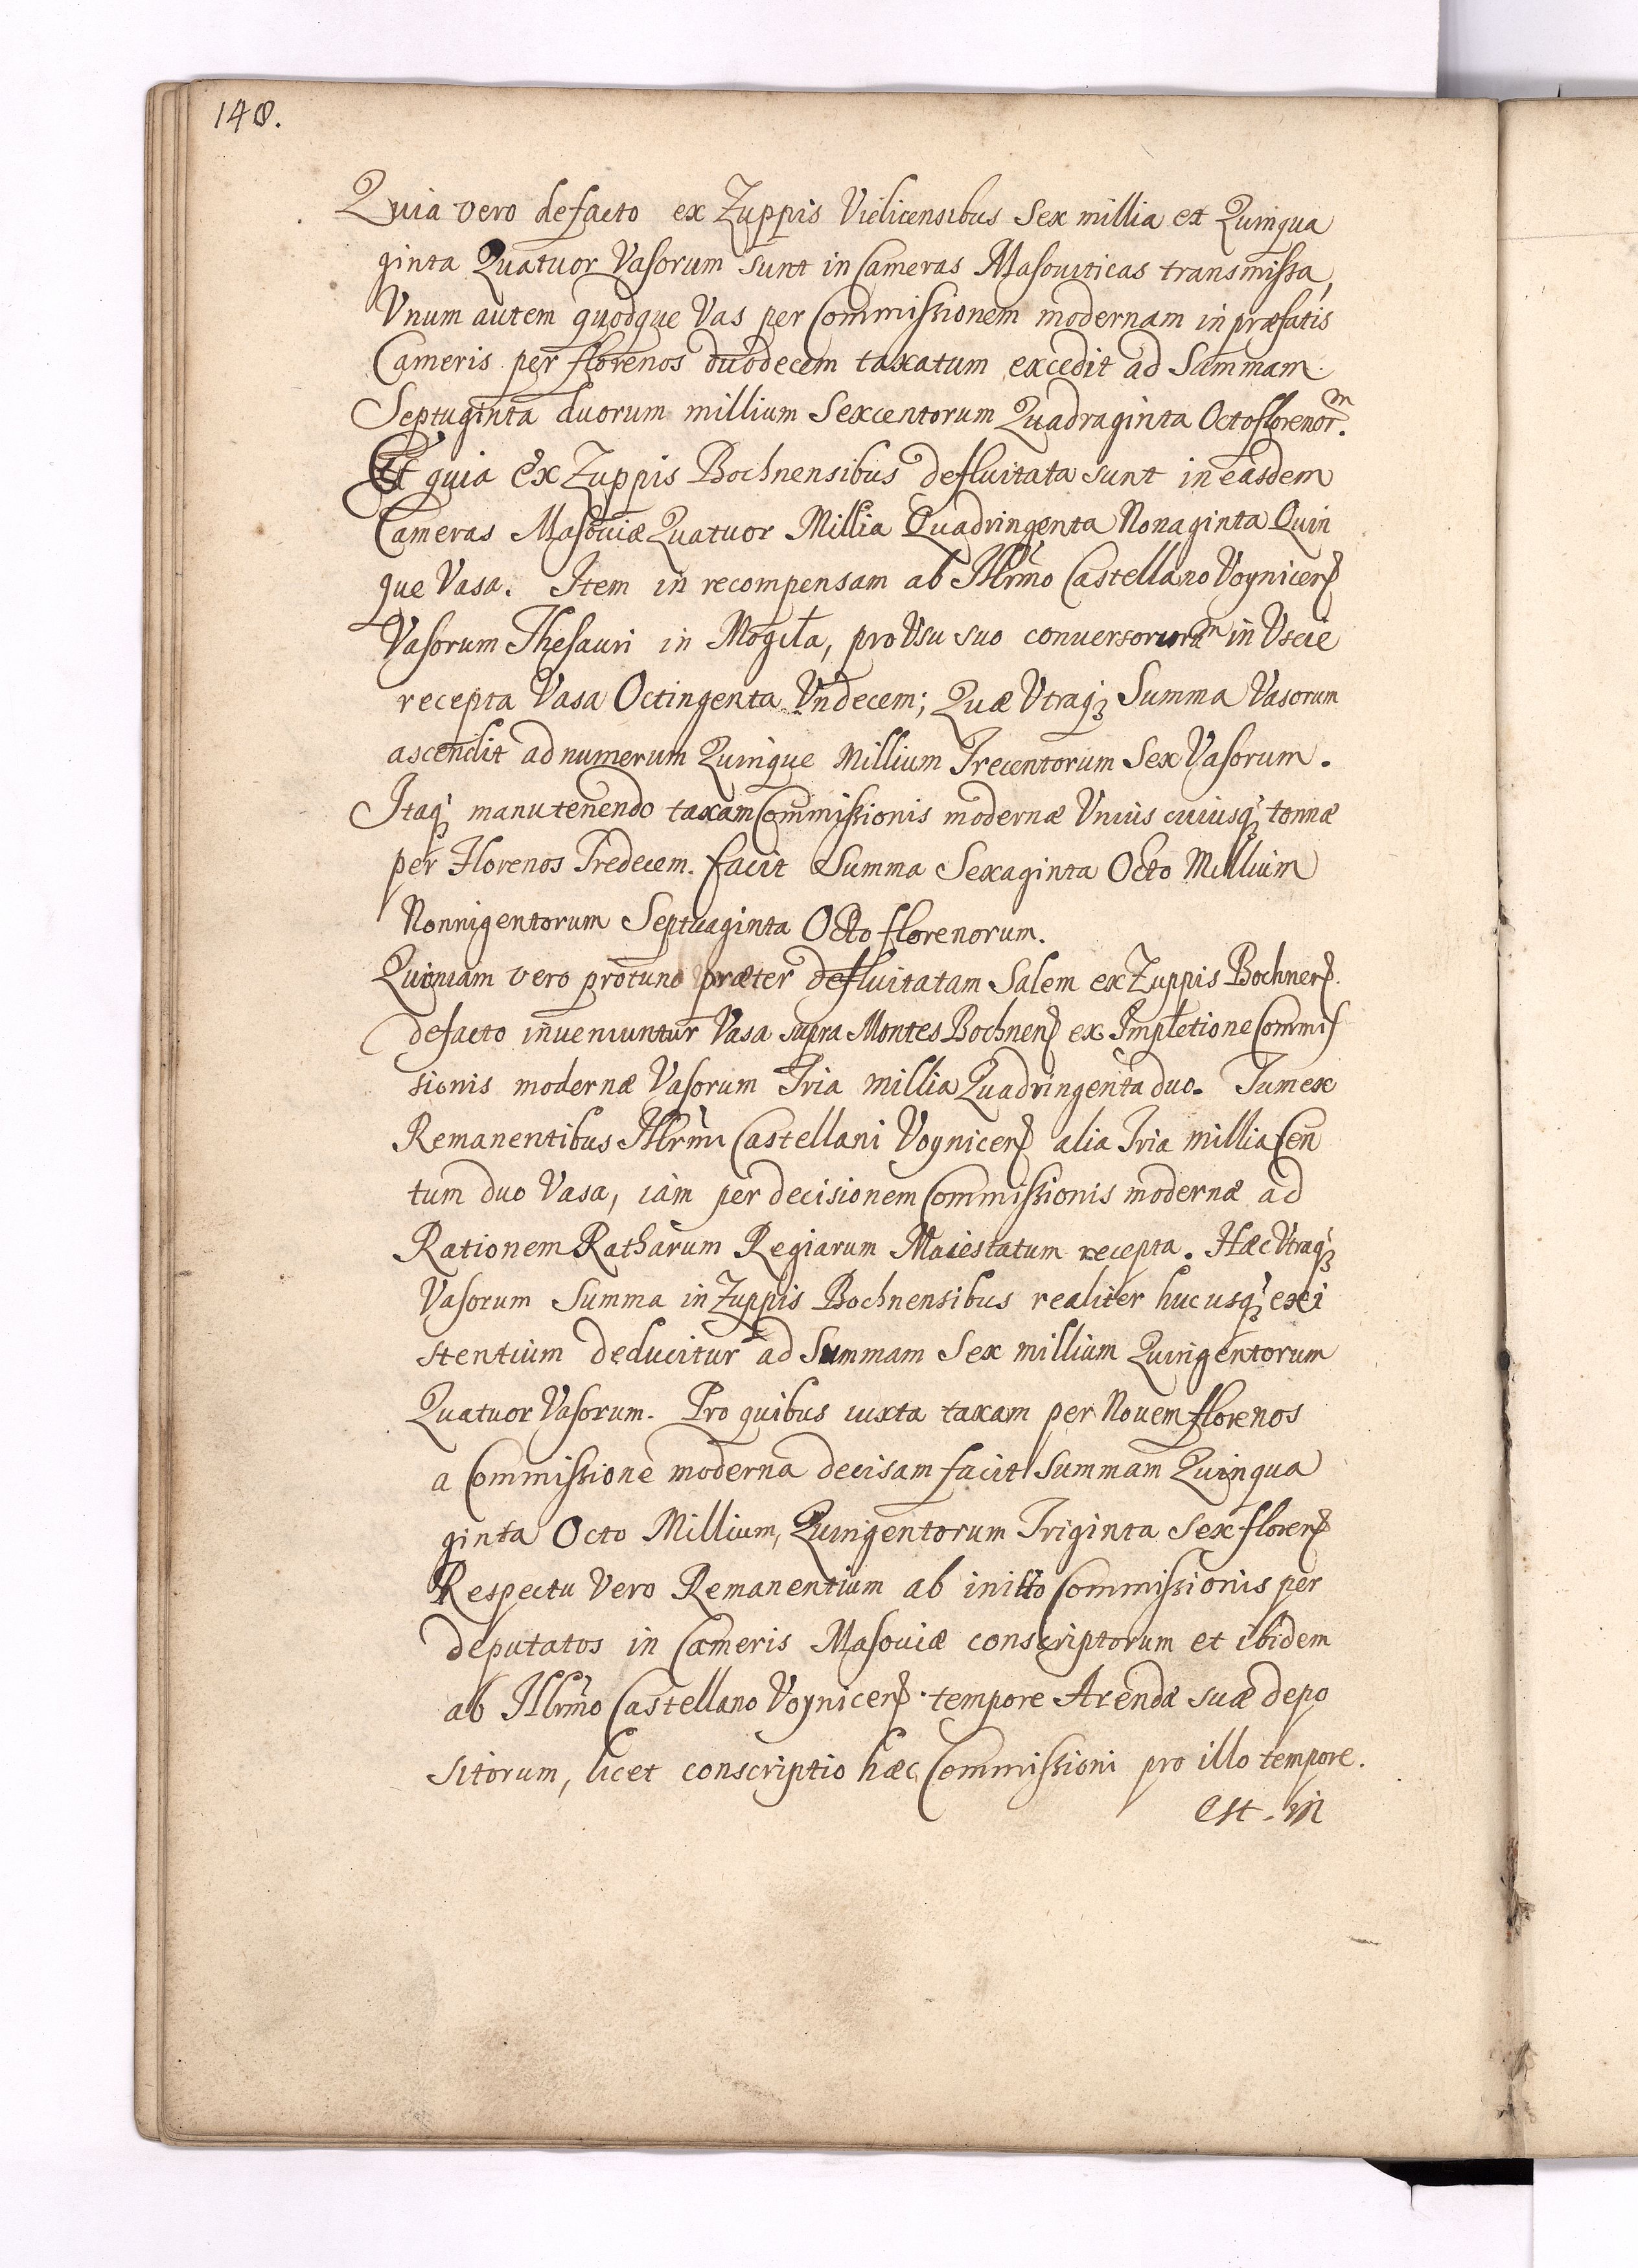 148.
Quia vero defacto ex Zuppis Vielicensibus Sex millia et Quinqua
ginta Quatuor Vasorum sunt in Cameras Masouiticas transmissa,
Vnum autem quodque Vas per Commissionem modernam in præfatis
Cameris per florenos duodecem taxatum excedit ad Sammam
Septuginta duorum millium Sexcentorum Quadraginta Octo florenorm.
Et quia Ex Zuppis Bochnensibus defluitata sunt in easdem
Cameras Masouiæ Quatuor Millia Quadringenta Nonaginta Quin
que Vasa. Item in recompensam ab Illrmo Castellano Voynicen
Vasorum Thesauri in Mogiła, pro Vsu suo in Vscie
recepta Vasa Octingenta Vndecem; Quæ Vtraqꝫ Summa Vasorum
ascendit ad numerum Quinque Millium Trecentorum Sex Vasorum.
Itaqꝫ manutenendo taxam Commissionis modernæ Vnius cuiusqꝫ tonnæ
per Florenos Tredecem. facit Summa Sexaginta Octo Millium
Nonnigentorum Septuaginta Octo florenorum.
Quoniam vero protunc præter defluitatam Salem ex Zuppis Bochnen.
defacto inveniuntur Vasa supra Montes Bochnen ex Impletione Commis
sionis modernæ Vasorum Tria millia Quadringenta duo. Tum ex
Remanentibus Illrmi Castellani Voynicen alia Tria millia Cen
tum duo Vasa, iam per decisionem Commissionis modernæ ad
Rationem Ratharum Regiarum Maiestatum recepta. Hæc Vtraqꝫ
Vasorum Summa in Zuppis Bochnensibus realiter hucusqꝫ exi
stentium deducitur ad Summam Sex millium Quingentorum
Quatuor Vasorum. Pro quibus iuxta taxam per Nouem florenos
a Commissione moderna decisam facit Summam Quinqua
ginta Octo Millium, Quingentorum Triginta Sex floren
Respectu Vero Remanentium ab initio Commissionis per
deputatos in Cameris Masouiæ conscriptorum et ibidem
ab Illrmo Castellano Voynicen tempore Arendæ suæ depo
sitorum, licet conscriptio hæc Commissioni pro illo tempore.
est in